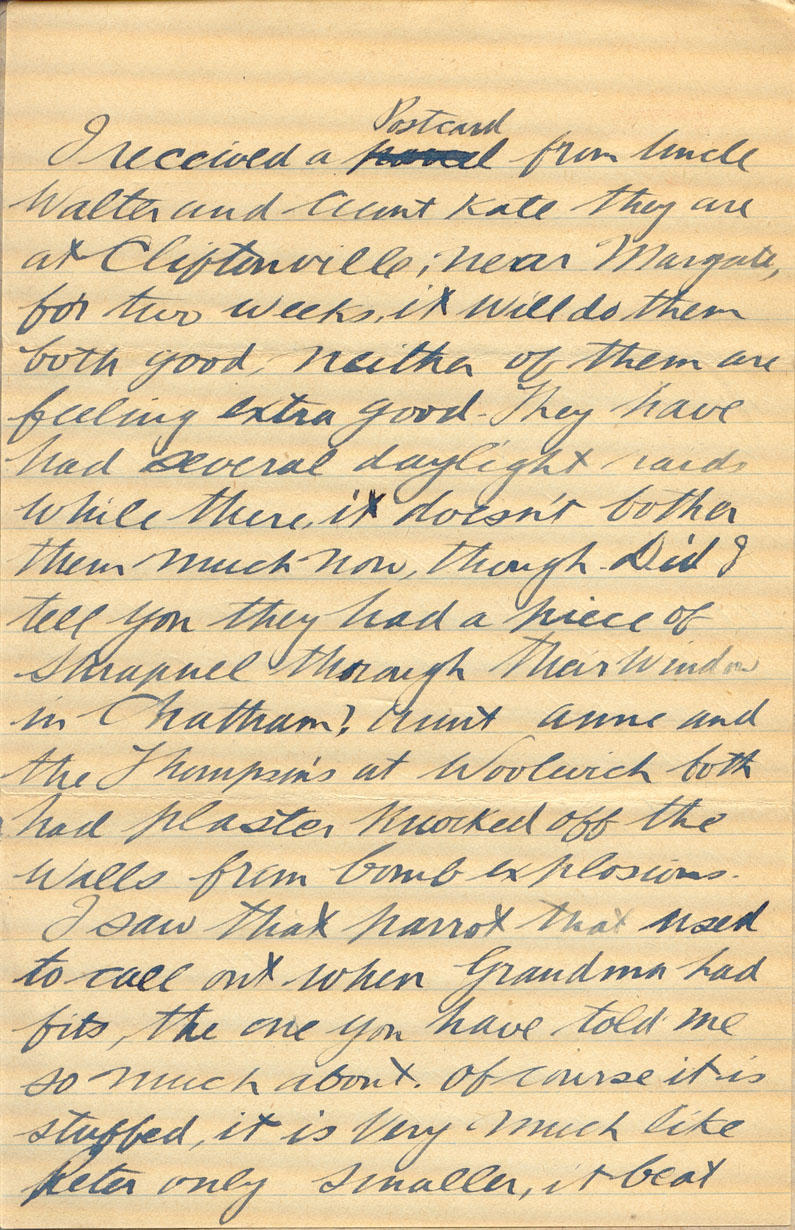 Postcard
I received a from Uncle
Walter and Aunt Kate they are
at Cliftonville; near Margate,
for two weeks, it will do them
both good, neither of them are
feeling extra good. They have
had several daylight raids
while there, it doesn't bother
them much now, though. Did I
tell you they had a piece of
shrapnel thorough their window
in Chatham? Aunt Anne and
the Thompsin's at Woolwich both
had plaster knocked off the
walls from bomb explosions.
I saw that parrot that used
to call out when Grandma had
fits, the one you have told me
so much about. Of course it is
stuffed, it is very much like
Peter only smaller, it beat